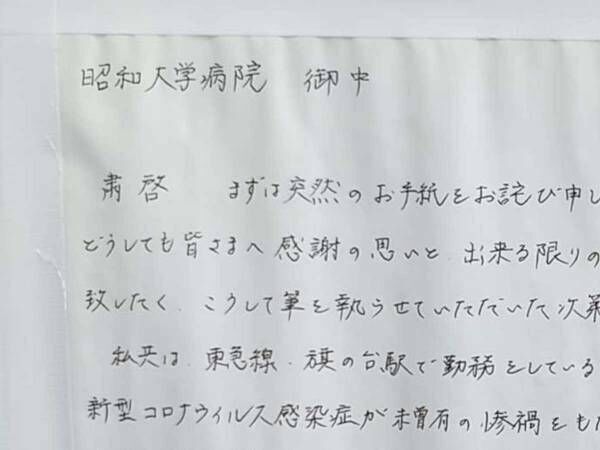 昭和大学病院 御中
粛啓 まずは突然のお手紙をお詫び申し
どうしても皆さまへ感謝の思いと、出来る限りの
致したく、こうして筆を執らせていただいた次第
私共は、東急線・旗の台駅で勤務をしている
新型コロナウィルス感染症が未曽有の惨禍をも